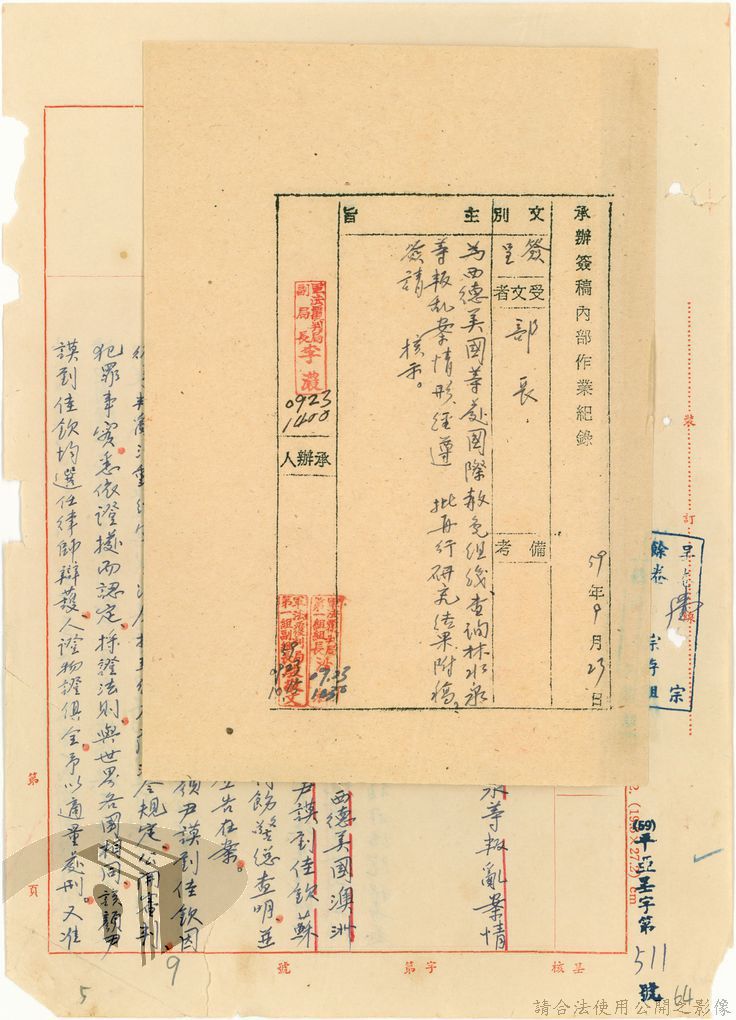 承辦簽稿內部作業紀錄
59年9月23日
文別
簽呈
受文者
部長
備考
主旨
為西德美國等處國際赦免組織查詢林水泉
等叛乱案情形經遵 批再行研究結果附稿
簽請 核示。
軍法覆判局
副局長李
0923
1400
承辦人
軍法覆判局
第一組組長
09.23
1030
軍法覆判局
第一組副組長
59
0923
裝
訂
線
餘卷
宗存組
宗
(59)平亞呈字第
511
號
64
泉等叛亂案情
西德美國澳洲
尹謨到佳欽蘇
飭詳慎查明並
告在案。
領尹謨到佳欽因
規定公開審判
犯罪事實悉依證據而認定。採證法則與世界各國相同。該顏尹
謨到佳欽均選任律師辯護人證物證俱全予以適量處刑。又准
第
頁
號
字第
基核
9
5
請合法使用公開之影像